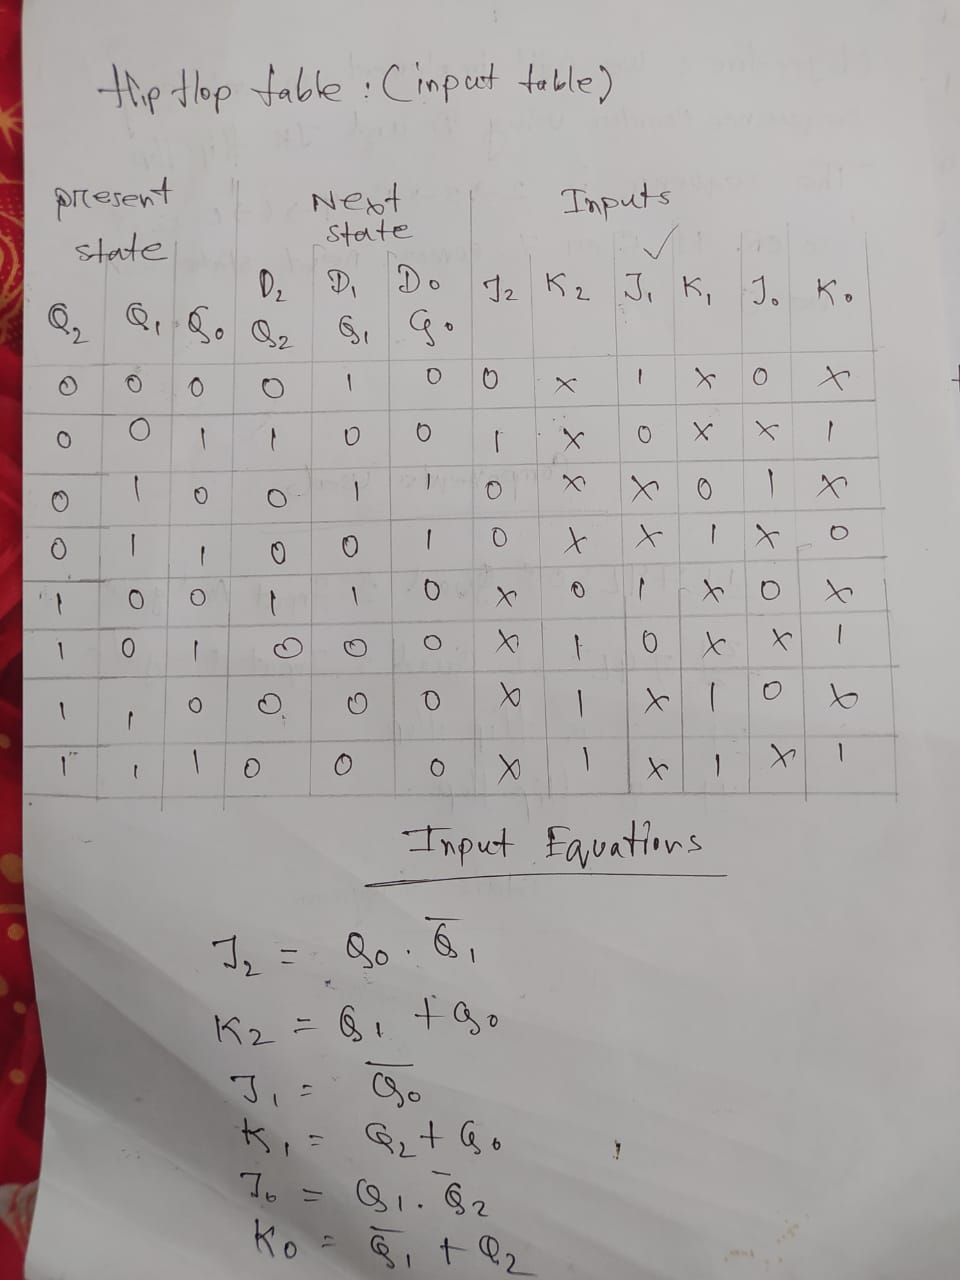 flip flop table : (input table)
present Next Inputs
state state ✓
D2 D1 D0 J2 K2 J1 K1 J0 K0
Q2 Q1 Q0 Q2 Q1 Q0
0 0 0 0 1 0 0 x 1 x 0 x
0 0 1 1 0 0 1 x 0 x x 1
0 1 0 0 1 1 0 x x 0 1 x
0 1 1 0 0 1 0 x x 1 x 0
1 0 0 1 1 0 x 0 1 x 0 x
1 0 1 0 0 0 x 1 0 x x 1
1 1 0 0 0 0 x 1 x 1 0 x
1 1 1 0 0 0 x 1 x 1 x 1
Input Equations
J2 = Q0 . Q̅1
K2 = Q1 + Q0
J1 = Q̅0
K1 = Q2 + Q0
J0 = Q1 . Q̅2
K0 = Q̅1 + Q2